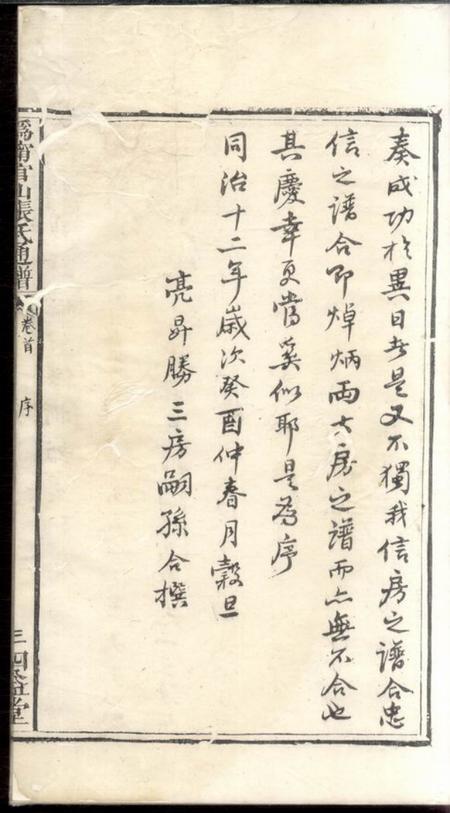 奏成功於異日者是又不獨我信房之譜合忠
信之譜合即焯炳両大房之譜而亦無不合也
其慶幸更當奚似耶是為序
同治十二年歲次癸酉仲春月穀旦
亮昇勝三房嗣孫合撰
溈甯官山張氏通譜 卷首 序 三 四益堂